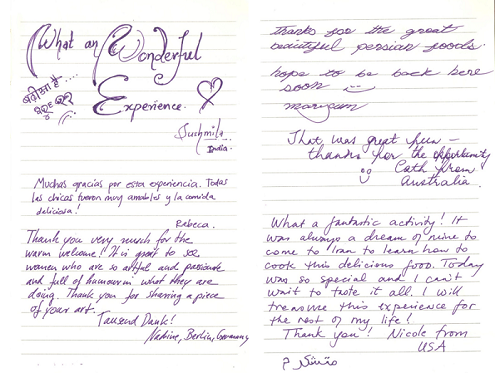 What an Wonderful
Experience.
Sushmila
India.
Muchas gracias por esta experiencia. Todas
las chicas fueron muy amables y la comida
deliciosa!
Rebeca.
Thank you very much for the
warm welcome! It is great to see
women who are so artful and passionate
and full of humour in what they are
doing. Thank you for sharing a piece
of your art.
Tausend Dank!
Nadine, Berlin, Germany
thanks for the great
beautiful persian foods.
hope to be back here
soon
maryam
That was great fun –
thanks for the opportunity
Cath from
Australia.
What a fantastic activity! It
was always a dream of mine to
come to Iran to learn how to
cook this delicious food. Today
was so special and I can't
wait to taste it all. I will
treasure this experience for
the rest of my life!
Thank you! Nicole from
USA
متشکرم